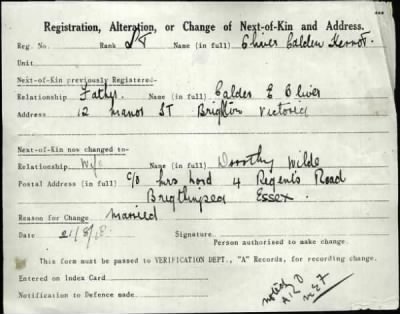 Registration, Alteration, or Change of Next-of-Kin and Address.
Reg. No. Rank LT Name (in full) Oliver Calder
Unit
Next-of-Kin previously Registered—
Relationship Father. Name (in full) Calder E Oliver
Address 12 Manor ST Brighton Victoria
Next-of-Kin now changed to—
Relationship Wife Name (in full) Dorothy Wilde
Postal Address (in full) c/o Mrs Lord 4 Regents Road
Brigthlinsea Essex.
Reason for Change Married
Date 21/8/18 Signature
Person authorised to make change.
This form must be passed to VERIFICATION DEPT., "A" Records, for recording change.
Entered on Index Card
Notification to Defence made.
noted